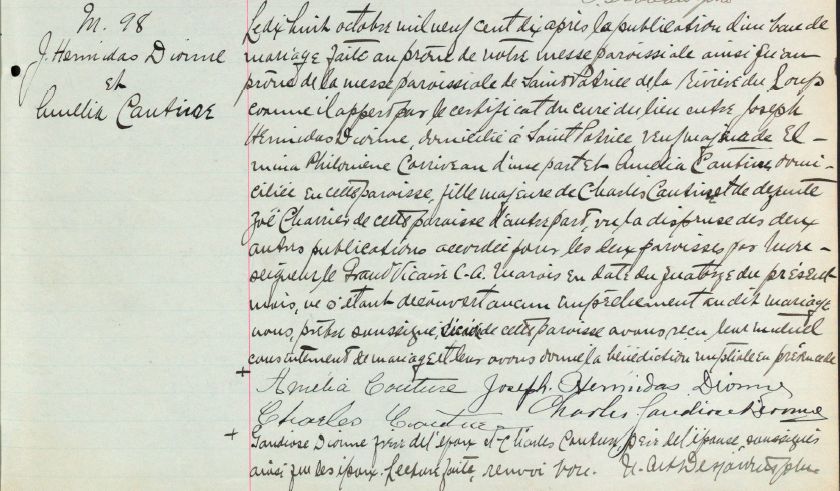 M. 98
J. Hermidas Dionne
et
Amelia Couture
Le dix huit octobre mil neuf cent dix après la publication d'un banc de
mariage faite au prône de notre messe paroissiale ainsi qu'au
prône de la messe paroissiale de Saint Patrice de la Rivière du Loup
comme il appert par le certificat du curé du lieu entre Joseph
Hermidas Dionne, domicilié à Saint Patrice veuf majeur de El-
mina Philomène Corriveau d'une part et Amelia Couture, domi-
ciliée en cette paroisse, fille majeure de Charles Couture et de défunte
Zoé Charrier de cette paroisse d'autre part, vu la dispense des deux
autres publications accordée pour les deux paroisses par Mon-
seigneur le Grand Vicaire C-A. Marois en date du quatorze du présent
mois, ne s'étant découvert aucun empêchement au dit mariage
nous, prêtre soussigné, de cette paroisse avons reçu leur mutuel
consentement de mariage et leur avons donné la bénédiction nuptiale en présence de
+ Amélia Couture Joseph. Hermidas Dionne
Charles Couture Charles Dionne
+ Dionne frère de l'époux et Charles Couture, père de l'épouse, soussignés
ainsi que les époux. Lecture faite, renvoi bon. Desjardins ptre